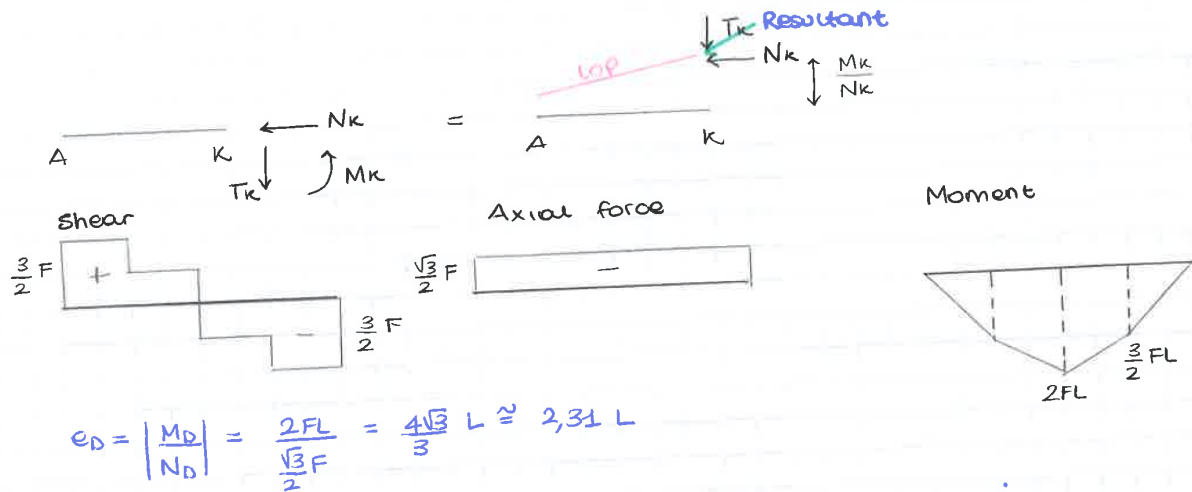 Tκ Resultant
Nκ
Mκ
Nκ
LOP
A K
Nκ
=
Tκ
Mκ
A K
Shear
Axial force
Moment
3/2 F
+
-
3/2 F
√3/2 F
-
3/2 FL
2FL
e_D = |M_D/N_D| = 2FL/(√3/2 F) = 4√3/3 L ≅ 2,31 L